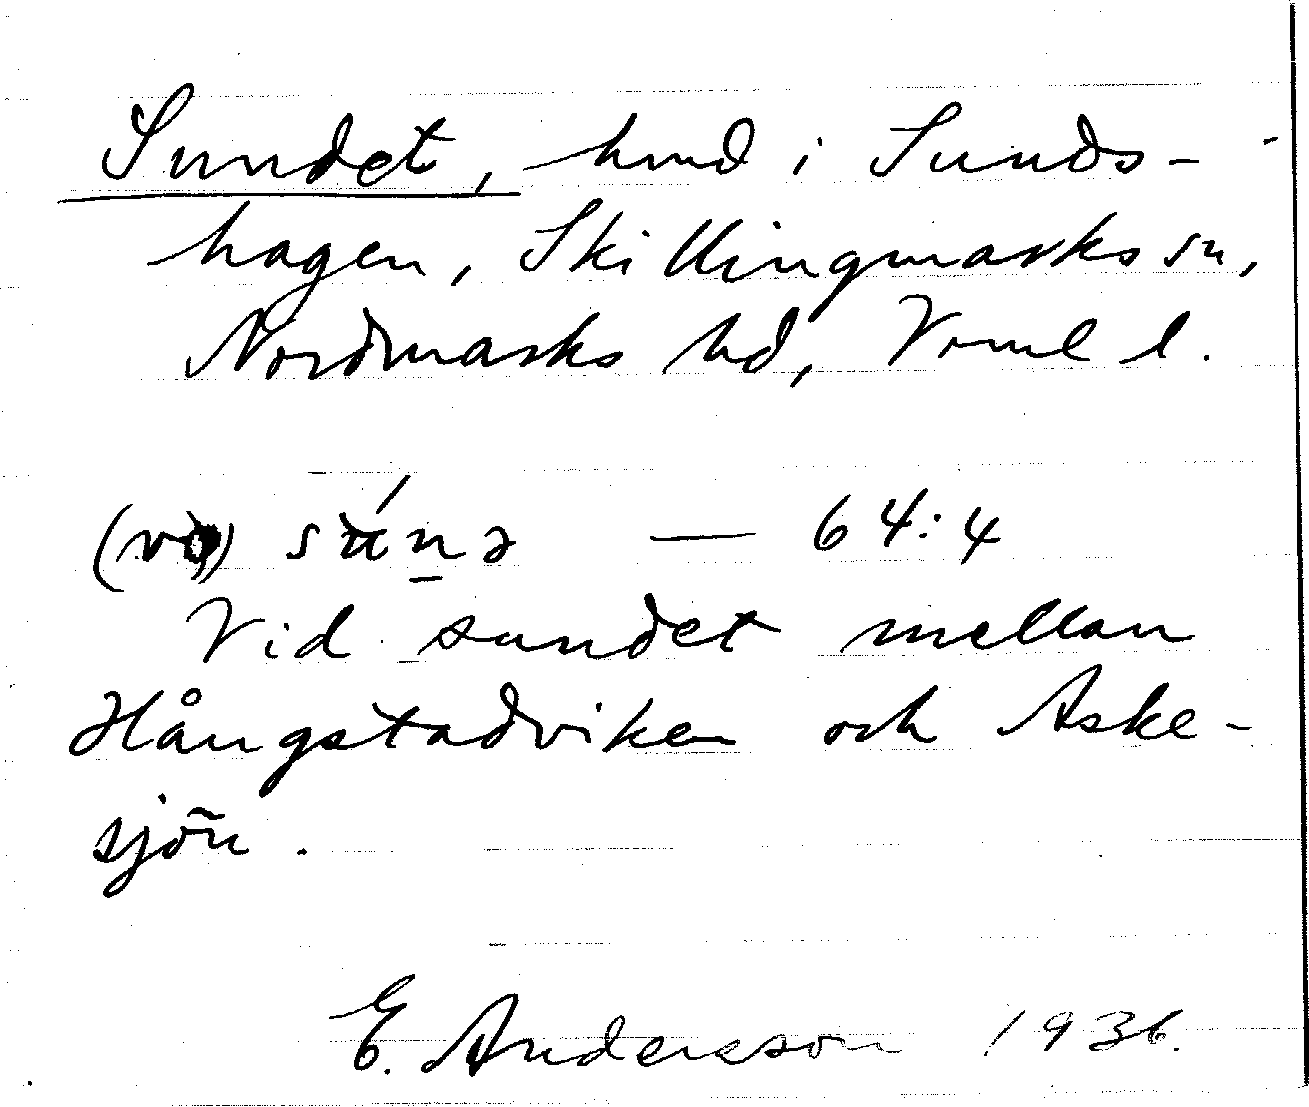 Sundet, hmd i Sunds-
hagen, Skillingmarks sn,
Nordmarks hd, Vrml l.
sún̲ə — 64:4
Vid sundet mellan
Hångstadviken och Aske-
sjön.
E. Andersson 1936.